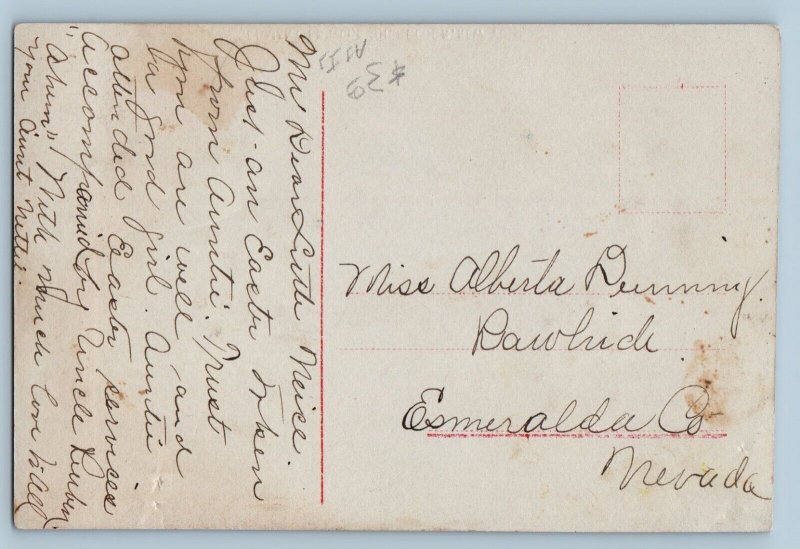 My Dear Little Neice
Just - an Easter Token
from Auntie. Trust
you are well and
a good girl. Auntie
attended Easter services
accompanied by Uncle Ruben
"alum" With much love to all
your Aunt Nettie.
$39
Miss Alberta Dunning.
Rawhide
Esmeralda Co
Nevada